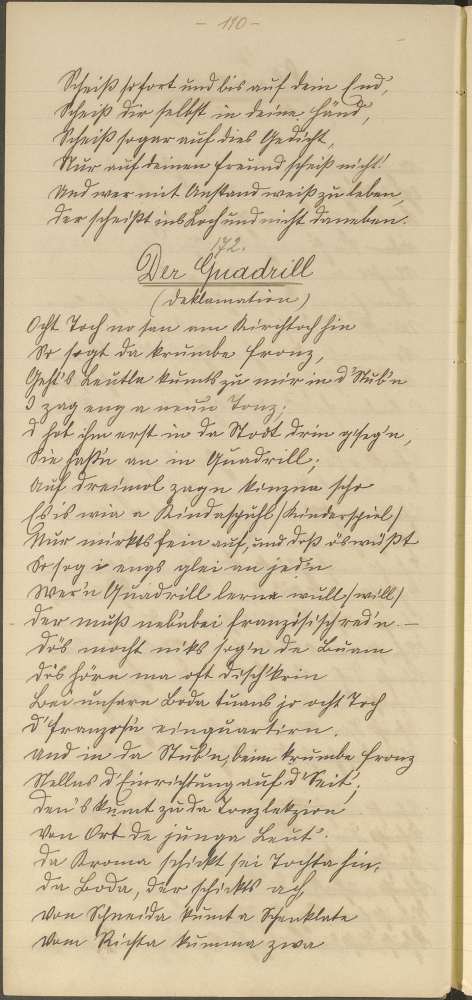 - 190 -
Scheiß sofort und bis auf dein End,
Scheiß dir selbst in deine Händ,
Scheiß sogar auf dies Gedicht,
Nur auf deinen Freund scheiß nicht!
Und wer mit Anstand weiß zu leben,
der scheißt ins Loch und nicht daneben.
172.
Der Quadrill
(Deklamation)
Ocht Toch no
am Kirchtoch hin
So sogt da krumbe Fronz,
Geht's Leutla kumts zu mir in d'Stub'n
I zag eng a neun Tonz;
I hob ihn erst in da Stodt drin g'seg'n,
Sie haß'n an in Quadrill;
Auf dreimol zagn kinzna scho
Es is wia a Kindaspühl (Kinderspiel)
Nur mirkts fein auf, und doß ös wüßt
So sog i engs glei an jed'n
Wer'n Quadrill lerna wüll (will)
der muß nebnbei französisch red'n. -
Dös mocht niks sog'n de Buam
Dös hörn ma oft disch'krin
Bei unsern Boda tuans jo ocht Toch
d'Franzos'n einquartirn.
Und in da Stub'n, beim krumbe Fronz
Stellns d'Einrichtung auf d'Seit',
Den's kumt zu da Tonzlekzion
Von Ort de junga Leut'.
Da Kroma schickt sei Tochta hin,
da Boda, der schickts ach,
Von Schneida kumt a
Vom Richta kumma zwa